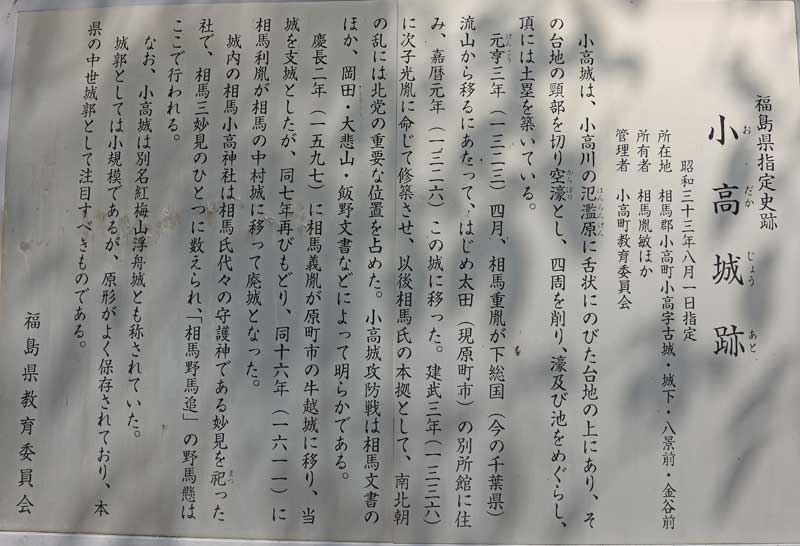 福島県指定史跡
小高城跡
おだかじょうあと
昭和三十三年八月一日指定
所在地　相馬郡小高町小高字古城・城下・八景前・金谷前
所有者　相馬胤敏ほか
管理者　小高町教育委員会
小高城は、小高川の氾濫原に舌状にのびた台地の上にあり、そ
はんらんげん
の台地の頸部を切り空濠とし、四周を削り、濠及び池をめぐらし、
からぼり
頂には土塁を築いている。
元亨三年（一三二三）四月、相馬重胤が下総国（今の千葉県）
げんこう
流山から移るにあたって、はじめ太田（現原町市）の別所館に住
み、嘉暦元年（一三二六）この城に移った。建武三年（一三三六）
に次子光胤に命じて修築させ、以後相馬氏の本拠として、南北朝
の乱には北党の重要な位置を占めた。小高城攻防戦は相馬文書の
ほか、岡田・大悲山・飯野文書などによって明らかである。
慶長二年（一五九七）に相馬義胤が原町市の牛越城に移り、当
城を支城としたが、同七年再びもどり、同十六年（一六一一）に
相馬利胤が相馬の中村城に移って廃城となった。
城内の相馬小高神社は相馬氏代々の守護神である妙見を祀った
まつ
社で、相馬三妙見のひとつに数えられ、「相馬野馬追」の野馬懸は
ここで行われる。
なお、小高城は別名紅梅山浮舟城とも称されていた。
城郭としては小規模であるが、原形がよく保存されており、本
県の中世城郭として注目すべきものである。
福島県教育委員会